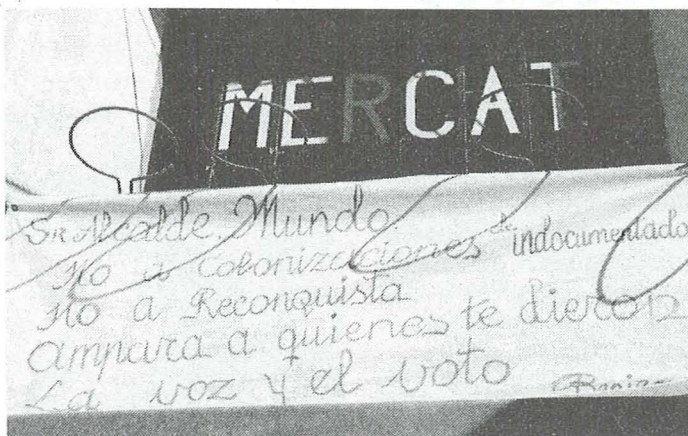 MERCAT
Sr Alcalde Mundo
No a Colonizaciones de indocumentado
No a Reconquista
Ampara a quienes te dieron
La voz y el voto